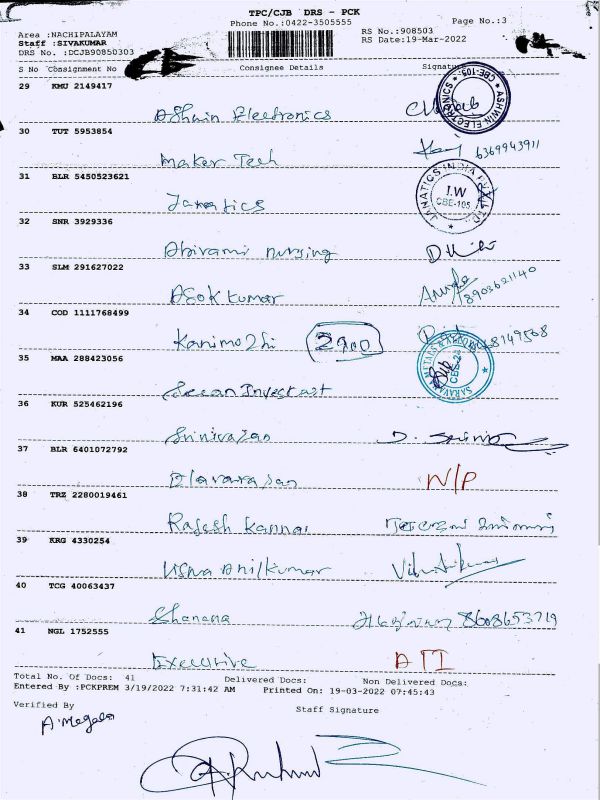 TPC/CJB DRS - PCK
Phone No.:0422-3505555
Page No.:3
Area :NACHIPALAYAM
Staff :SIVAKUMAR
DRS No. :DCJB90850303
RS No.:908503
RS Date:19-Mar-2022
S No Consignment No Consignee Details Signature
29 KMU 2149417
Ashwin Electronics
ASHWIN ELECTRONICS CBE-105
30 TUT 5953854
Maker Tech 6369943911
31 BLR 5450523621
Janatics
JANATICS INDIA PVT LTD I.W CBE-105
32 SNR 3929336
Abirami nursing
33 SLM 291627022
Asok kumar 8903621140
34 COD 1111768499
Kanimozhi 2900
35 MAA 288423056
36 KUR 525462196
Srinivasan
37 BLR 6401072792
Elavarasan N/P
38 TRZ 2280019461
Rajesh Kannan
39 KRG 4330254
Usha Anilkumar
40 TCG 40063437
8608653719
41 NGL 1752555
Executive
Total No. Of Docs: 41 Delivered Docs: Non Delivered Docs:
Entered By :PCKPREM 3/19/2022 7:31:42 AM Printed On: 19-03-2022 07:45:43
Verified By Staff Signature